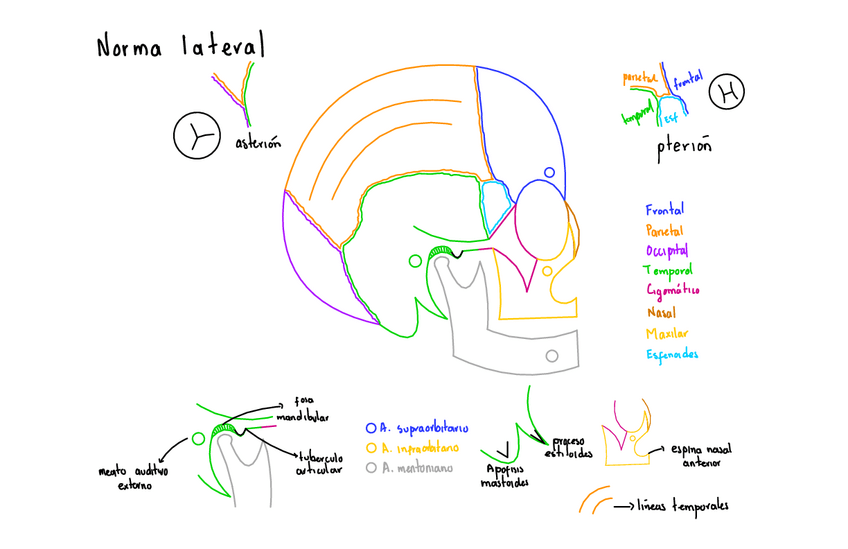 Norma lateral
asterión
parietal
frontal
temporal
Esf
pterión
Frontal
Parietal
Occipital
Temporal
Cigomático
Nasal
Maxilar
Esfenoides
fosa
mandibular
tubérculo
articular
meato auditivo
externo
A. supraorbitario
A. infraorbitario
A. mentoniano
Apófisis
mastoides
proceso
estiloides
espina nasal
anterior
líneas temporales